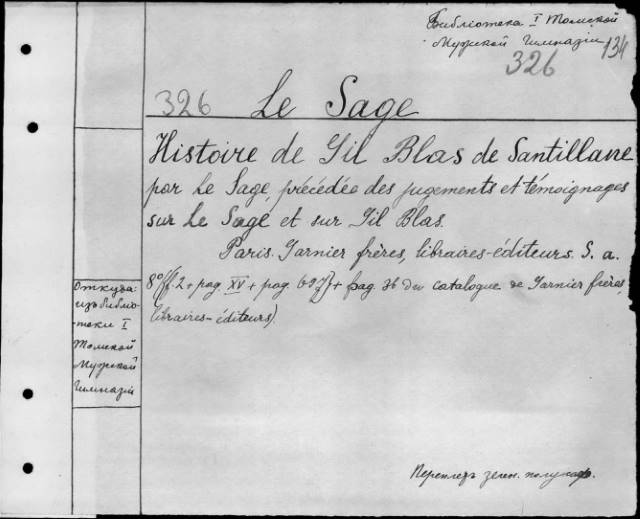 Библиотека I Томской
Мужской Гимназіи
134
326
326 Le Sage
Histoire de Gil Blas de Santillane
par Le Sage, précédée des jugements et témoignages
sur Le Sage et sur Gil Blas.
Paris. Garnier frères, libraires-éditeurs. S. a.
8° 2 + pag. XV + pag. + pag. 36 du catalogue de Garnier frères,
libraires-éditeurs).
Откуда:
изъ библіо-
-теки I
Томской
Мужской
Гимназіи
Переплетъ зелен.